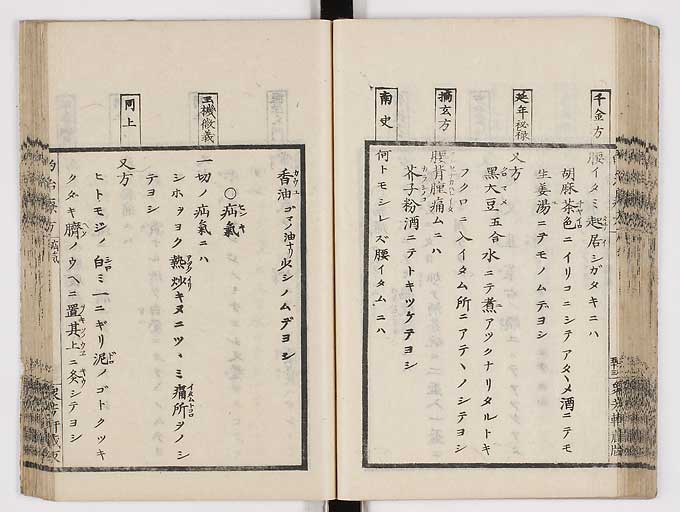 千金方
腰イタミ起居シガタキニハ
胡麻茶色ニイリコニシテアタヽメ酒ニテモ
生姜湯ニテモノムテヨシ
延年秘禄
又方
黒大豆五合水ニテ煮アツクナリタルトキ
フクロニ入イタム所ニアテヽノシテヨシ
摘玄方
腰背腫痛ムニハ
芥子粉酒ニテトキツケテヨシ
南史
何トモシレズ腰イタムニハ
香油ゴマノ油ナリ少シノムデヨシ
○疝氣
玉機微義
一切ノ疝氣ニハ
シホヲヨク熱炒キヌニツヽミ痛所ヲノシ
テヨシ
同上
又方
ヒトモジノ白ミ一ニギリ泥ノゴトクツキ
クダキ臍ノウヘニ置其上ニ灸シテヨシ